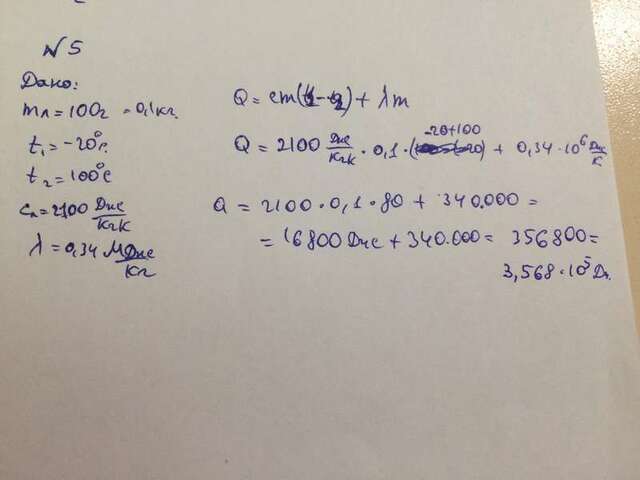 N 5
Дано:
mл = 100г = 0,1 кг.
t₁ = -20°
t₂ = 100°С
Cл = 2100 Дж/кгК
λ = 0,34 МДж/кг
Q = cm(t-t₂) + λm
-20+100
Q = 2100 Дж/кгК · 0,1 · ( ) + 0,34 · 10⁶ Дж/К
Q = 2100 · 0,1 · 80 + 340.000 =
= 16800 Дж + 340.000 = 356800 =
3,568 · 10⁵ Д